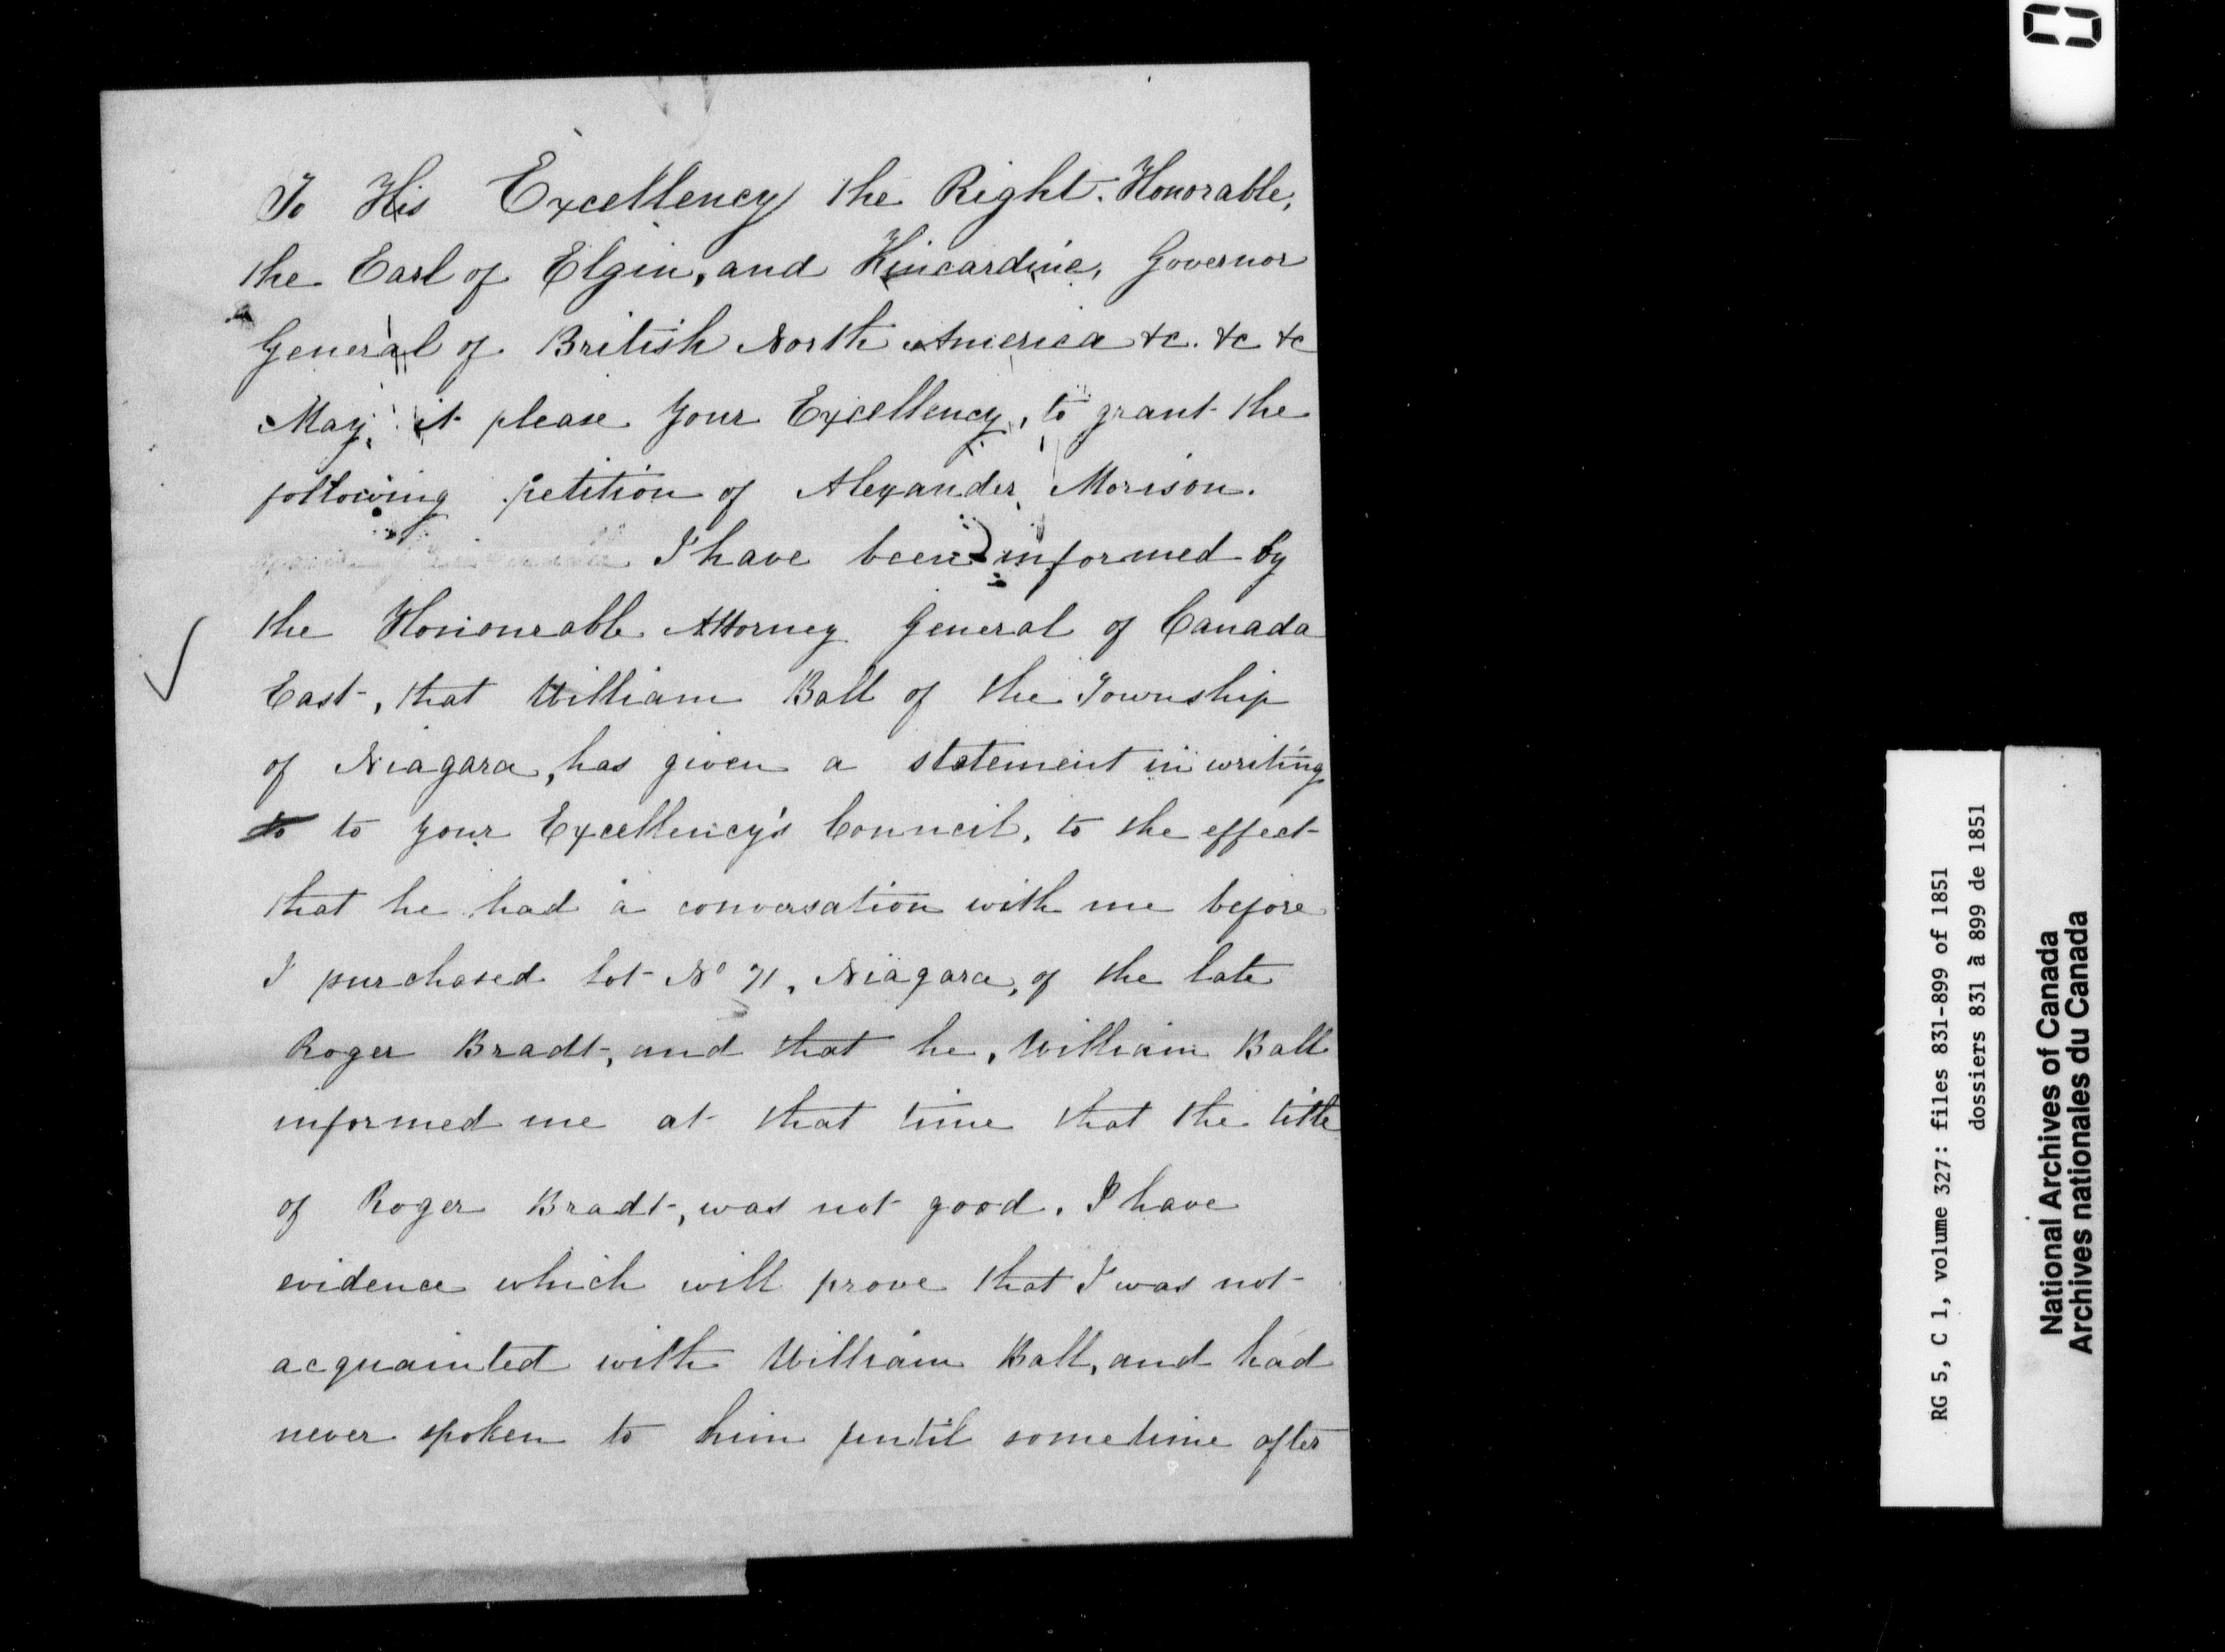 To His Excellency the Right. Honorable,
the Earl of Elgin, and Kincardine, Governor
General of British North America &c. &c &c
May it please Your Excellency, to grant the
following petition of Alexander Morison.
I have been informed by
the Honourable Attorney General of Canada
East, that William Ball of the Township
of Niagara, has given a statement in writing
to to your Excellency's Council, to the effect
that he had a conversation with me before
I purchased Lot No 71, Niagara, of the late
Roger Bradt, and that he, William Ball
informed me at that time that the title
of Roger Bradt, was not good. I have
evidence which will prove that I was not
acquainted with William Ball, and had
never spoken to him until sometime after
RG 5, C 1, volume 327: files 831-899 of 1851
dossiers 831 à 899 de 1851
National Archives of Canada
Archives nationales du Canada